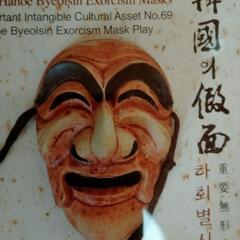 Hahoe Byeolsin Exorcism Masks
rtant Intangible Cultural Asset No.69
oe Byeolsin Exorcism Mask Play
韓國의假面
重要無形
하회별신